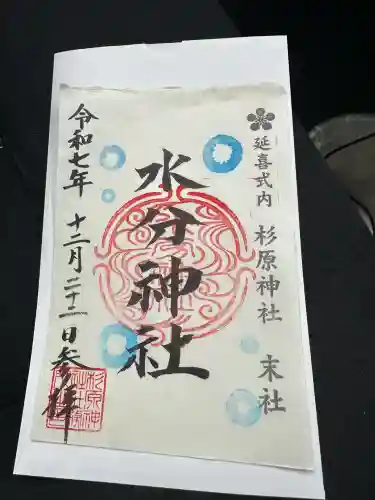 延喜式内 杉原神社 末社
水分神社
令和七年 十二月二十二日参拝